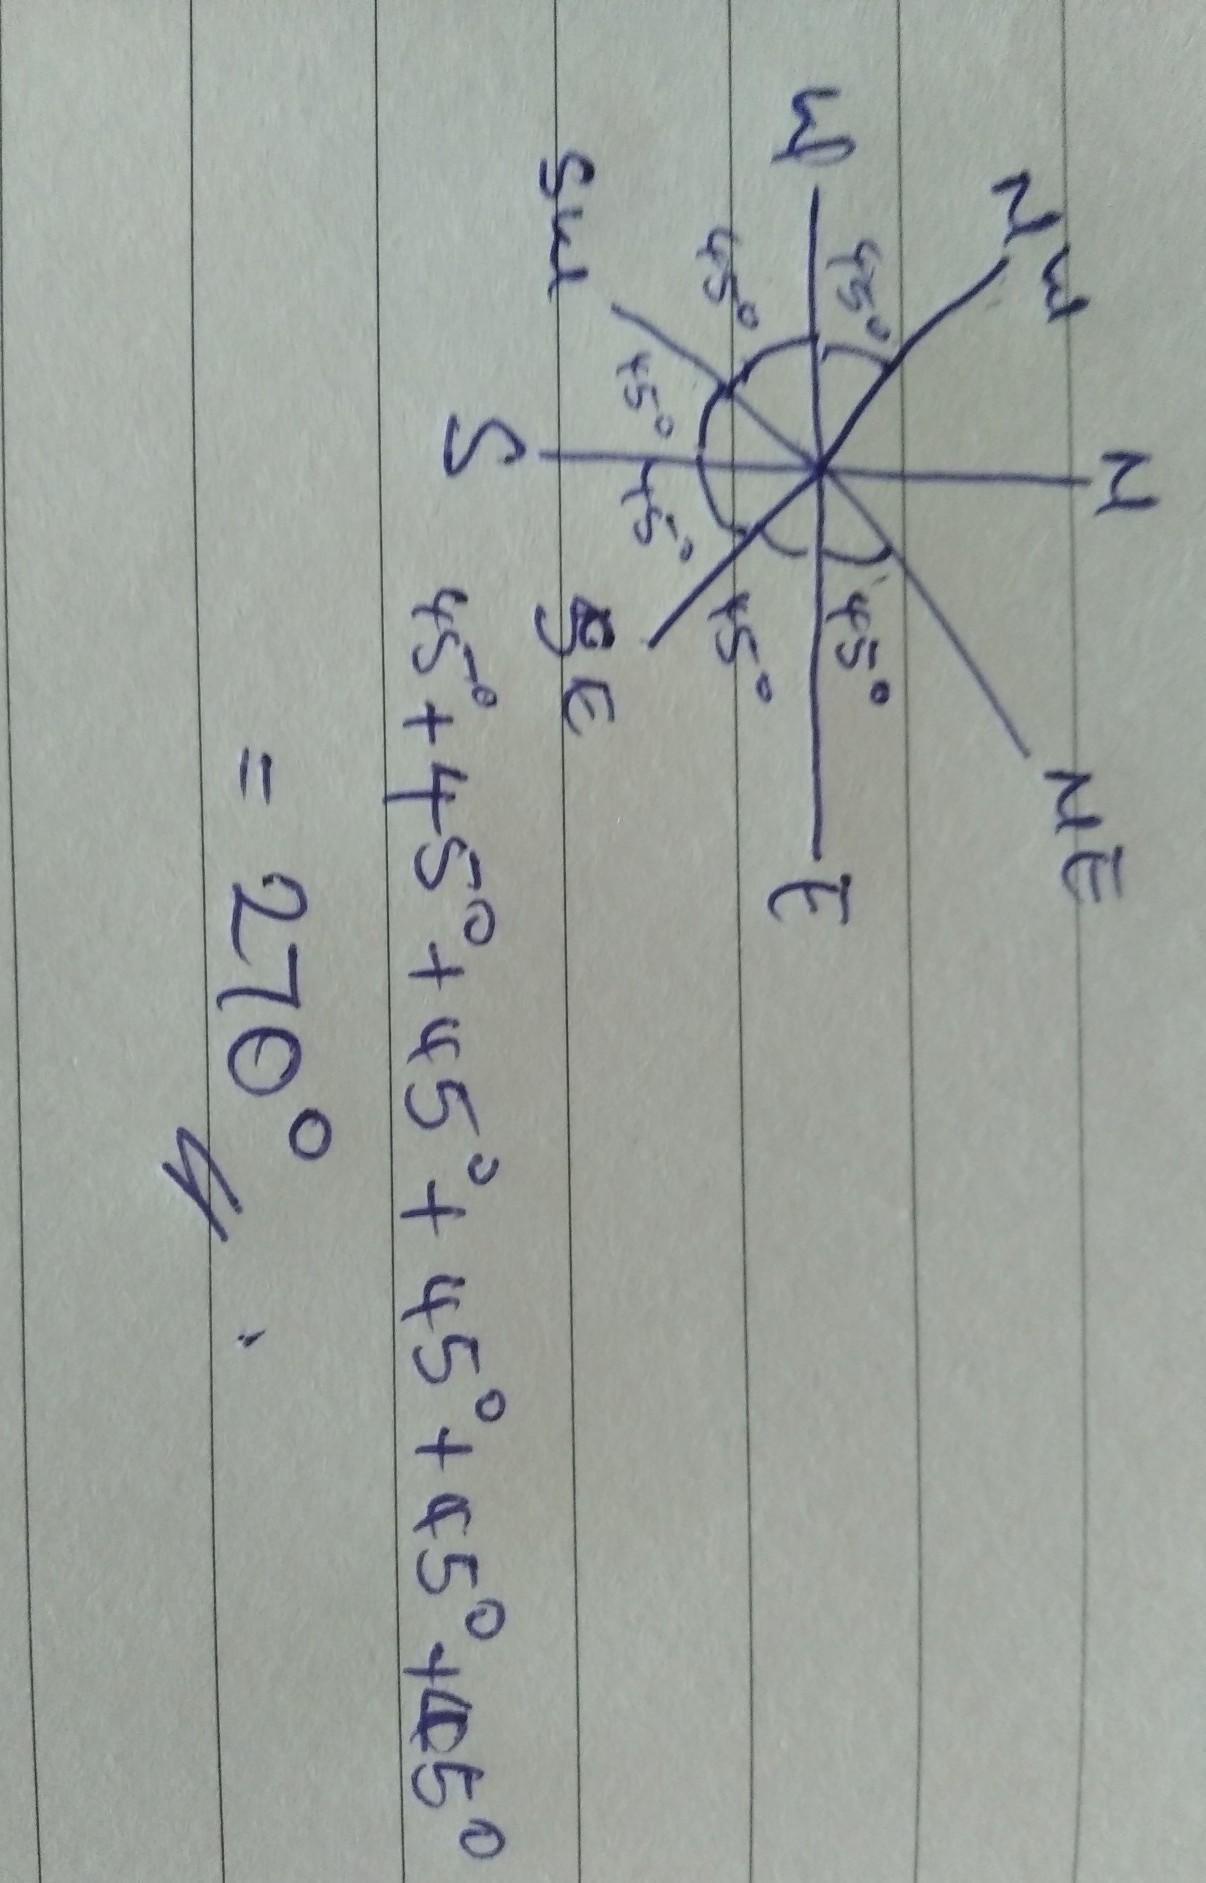 N
NW
NE
45° 45°
W E
45° 45°
45° 45°
SW SE
S
45° + 45° + 45° + 45° + 45° + 45°
= 270°